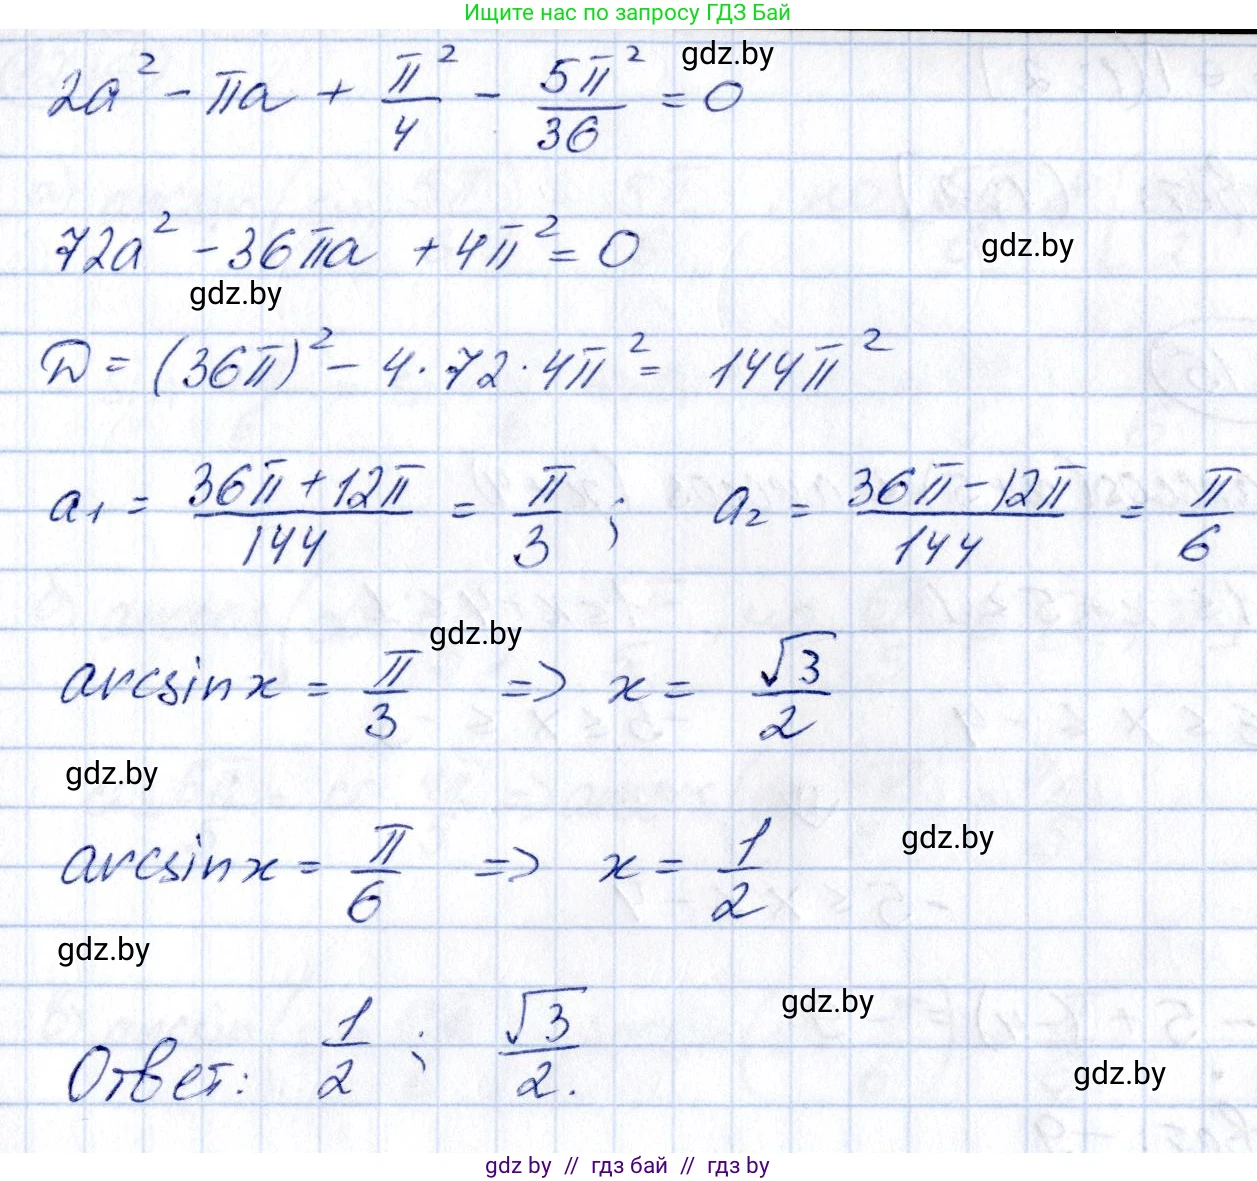 Ищите нас по запросу ГДЗ Бай
gdz.by
2a² - πa + π²/4 - 5π²/36 = 0
72a² - 36πa + 4π² = 0
gdz.by
gdz.by
D = (36π)² - 4·72·4π² = 144π²
a₁ = (36π+12π)/144 = π/3 ; a₂ = (36π-12π)/144 = π/6
gdz.by
arcsinx = π/3 => x = √3/2
gdz.by
gdz.by
arcsinx = π/6 => x = 1/2
gdz.by
gdz.by
Ответ: 1/2 ; √3/2.
gdz.by
gdz by // гдз бай // гдз by